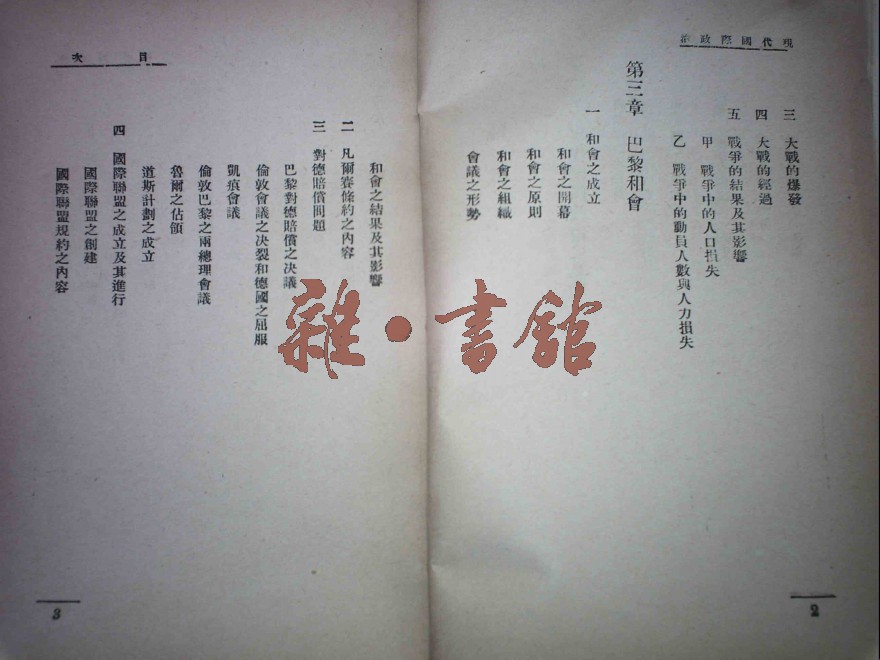 現代國際政治
三 大戰的爆發
四 大戰的經過
五 戰爭的結果及其影響
甲 戰爭中的人口損失
乙 戰爭中的動員人數與人力損失
第三章 巴黎和會
一 和會之成立
和會之開幕
和會之原則
和會之組織
會議之形勢
2
目次
和會之結果及其影響
二 凡爾賽條約之內容
三 對德賠償問題
巴黎對德賠償之決議
倫敦會議之决裂和德國之屈服
凱痕會議
倫敦巴黎之兩總理會議
魯爾之佔領
道斯計劃之成立
四 國際聯盟之成立及其進行
國際聯盟之創建
國際聯盟規約之內容
3
雜·書館